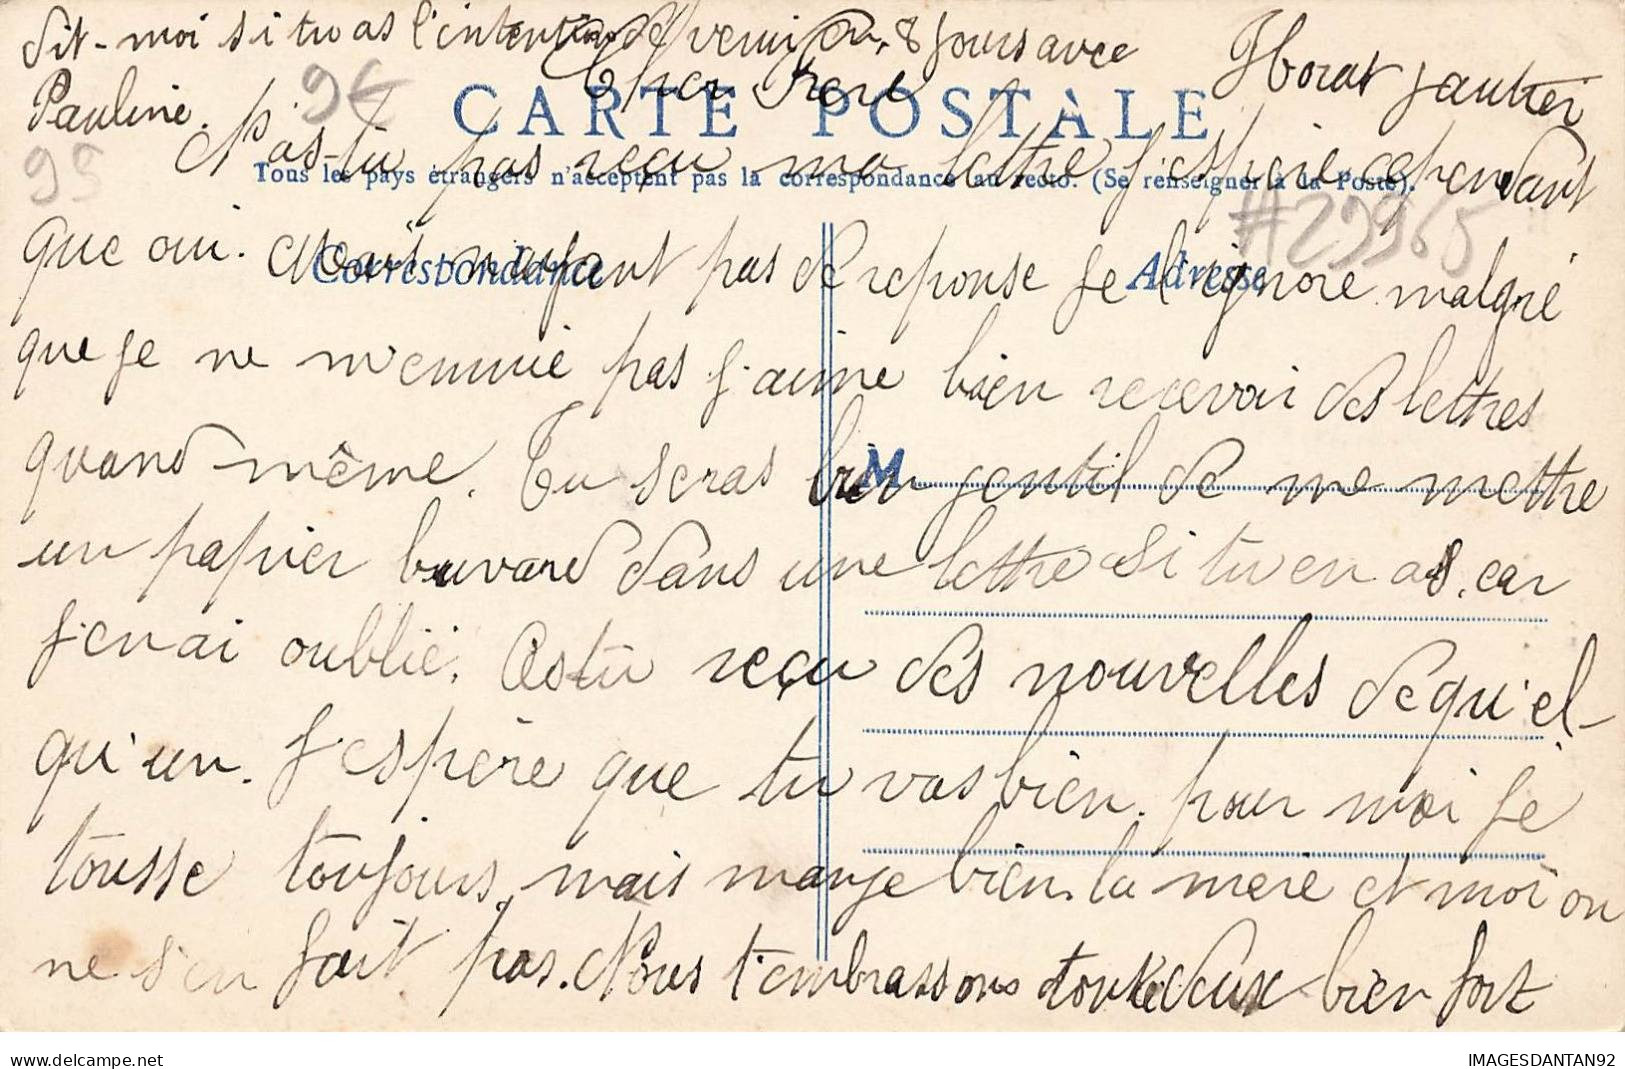 dit-moi si tu as l'intention de venir 8 jours avec
Pauline.
9€
99
Cher Frere
CARTE POSTALE
N'as-tu pas reçu ma lettre j'espère cependant
Tous les pays étrangers n'acceptent pas la correspondance au recto. (Se renseigner à la Poste).
#239965
que oui. Mais n'ayant pas de reponse je l'ignore malgré
Correspondance
Adresse
que je ne m'ennuie pas j'aime bien recevoir des lettres
quand-même. Tu seras bien gentil de me mettre
M
un papier buvard dans une lettre si tu en as, car
j'en ai oublié. As tu reçu des nouvelles de qu'el-
qu'un. J'espère que tu vas bien. pour moi je
tousse toujours, mais mange bien. la mere et moi on
ne s'en fait pas. Nous t'embrassons toute deux bien fort
delcampe.net
IMAGESDANTAN92